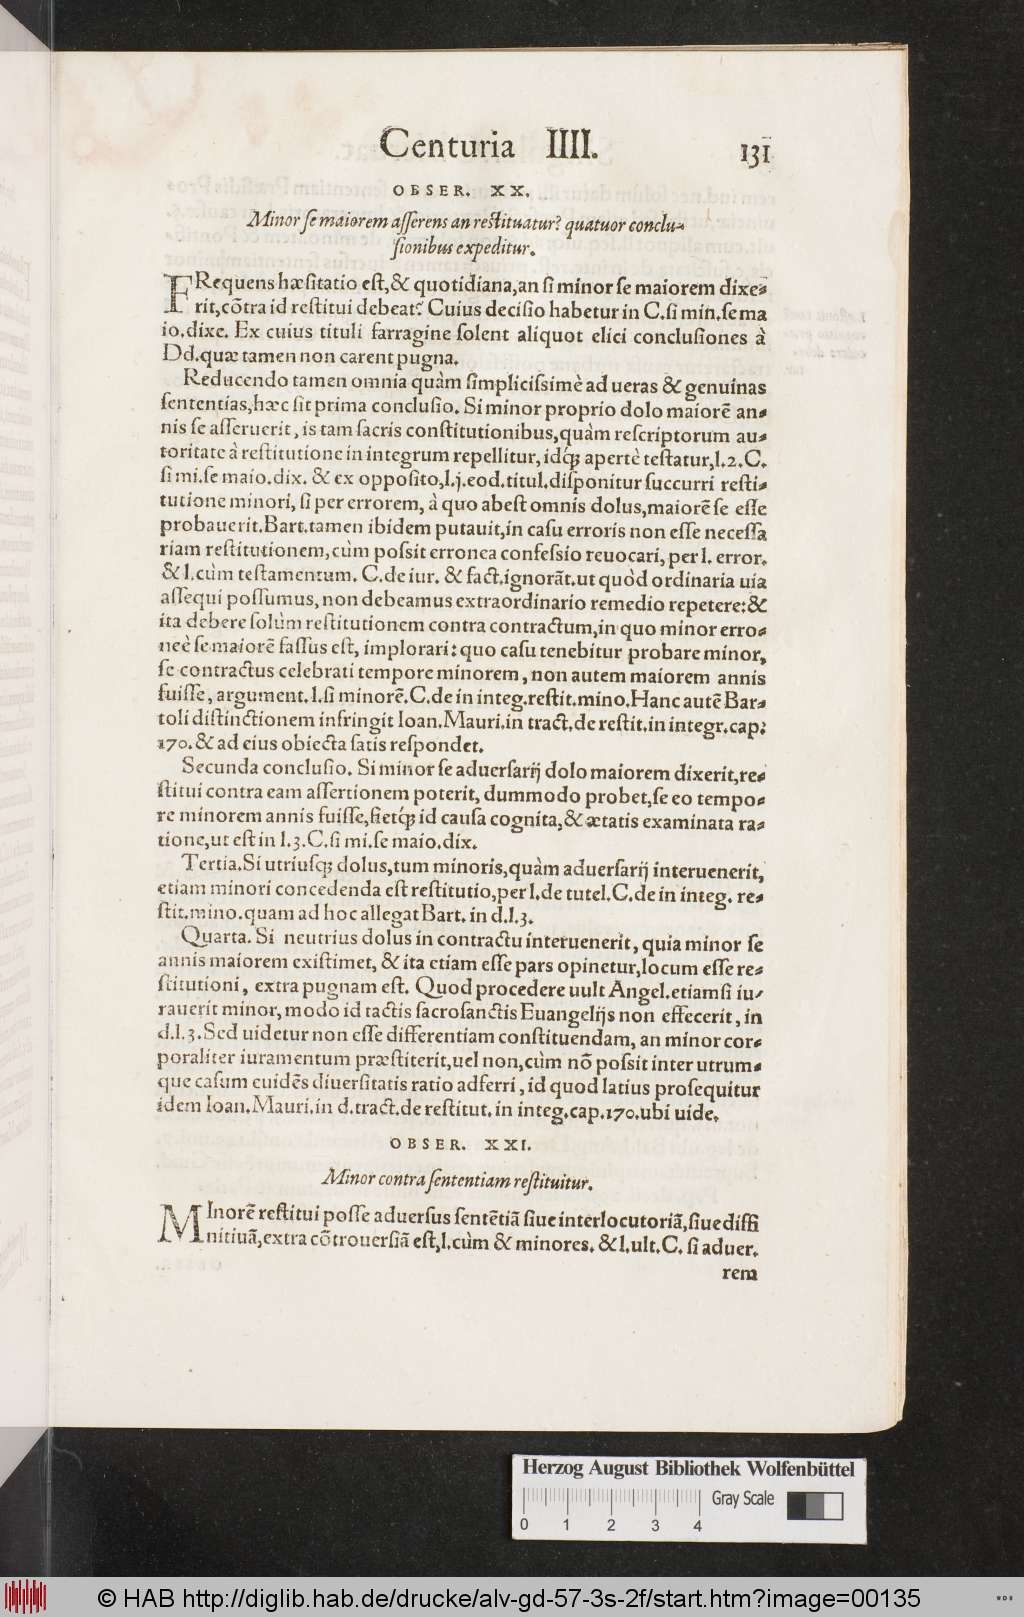 Centuria IIII. 131
OBSER. XX.
Minor ſe maiorem aſſerens an reſtituatur? quatuor conclu-
ſionibus expeditur.
FRequens hæſitatio eſt, & quotidiana, an ſi minor ſe maiorem dixe-
rit, cōtra id reſtitui debeat? Cuius deciſio habetur in C. ſi min. ſe ma
io. dixe. Ex cuius tituli farragine ſolent aliquot elici concluſiones à
Dd. quæ tamen non carent pugna.
Reducendo tamen omnia quàm ſimpliciſsimè ad ueras & genuinas
ſententias, hæc ſit prima concluſio. Si minor proprio dolo maiorē an-
nis ſe aſſeruerit, is tam ſacris conſtitutionibus, quàm reſcriptorum au-
toritate à reſtitutione in integrum repellitur, idq́; apertè teſtatur, l. 2. C.
ſi mi. ſe maio. dix. & ex oppoſito, l. j. eod. titul. diſponitur ſuccurri reſti-
tutione minori, ſi per errorem, à quo abeſt omnis dolus, maiorē ſe eſſe
probauerit. Bart. tamen ibidem putauit, in caſu erroris non eſſe neceſſa
riam reſtitutionem, cùm poſsit erronea confeſsio reuocari, per l. error.
& l. cùm teſtamentum. C. de iur. & fact. ignorāt. ut quòd ordinaria uia
aſſequi poſſumus, non debeamus extraordinario remedio repetere: &
ita debere ſolùm reſtitutionem contra contractum, in quo minor erro-
neè ſe maiorē faſſus eſt, implorari: quo caſu tenebitur probare minor,
ſe contractus celebrati tempore minorem, non autem maiorem annis
fuiſſe, argument. l. ſi minorē. C. de in integ. reſtit. mino. Hanc autē Bar-
toli diſtinctionem infringit Ioan. Mauri. in tract. de reſtit. in integr. cap:
170. & ad eius obiecta ſatis reſpondet.
Secunda concluſio. Si minor ſe aduerſarij dolo maiorem dixerit, re-
ſtitui contra eam aſſertionem poterit, dummodo probet, ſe eo tempo-
re minorem annis fuiſſe, fietq́; id cauſa cognita, & ætatis examinata ra-
tione, ut eſt in l. 3. C. ſi mi. ſe maio. dix.
Tertia. Si utriuſq; dolus, tum minoris, quàm aduerſarij interuenerit,
etiam minori concedenda eſt reſtitutio, per l. de tutel. C. de in integ. re-
ſtit. mino. quam ad hoc allegat Bart. in d. l. 3.
Quarta. Si neutrius dolus in contractu interuenerit, quia minor ſe
annis maiorem exiſtimet, & ita etiam eſſe pars opinetur, locum eſſe re-
ſtitutioni, extra pugnam eſt. Quod procedere uult Angel. etiamſi iu-
rauerit minor, modo id tactis ſacroſanctis Euangelijs non effecerit, in
d. l. 3. Sed uidetur non eſſe differentiam conſtituendam, an minor cor-
poraliter iuramentum præſtiterit, uel non, cùm nō poſsit inter utrum-
que caſum euidēs diuerſitatis ratio adferri, id quod latius proſequitur
idem Ioan. Mauri. in d. tract. de reſtitut. in integ. cap. 170. ubi uide.
OBSER. XXI.
Minor contra ſententiam reſtituitur.
MInorē reſtitui poſſe aduerſus ſentētiā ſiue interlocutoriā, ſiue diffi
nitiuā, extra cōtrouerſiā eſt, l. cùm & minores. & l. ult. C. ſi aduer.
rem
Herzog August Bibliothek Wolfenbüttel
Gray Scale
0 1 2 3 4
© HAB http://diglib.hab.de/drucke/alv-gd-57-3s-2f/start.htm?image=00135